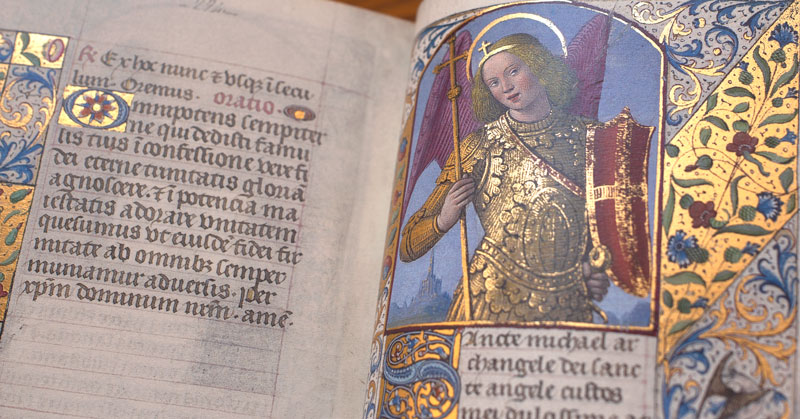 ℟ Ex hoc nunc & vsqȝ ī secu
lum. Oremus. oratio
Omnipotens sempiter
ne qui dedisti famu
lis tuis ī confessione vere fi
dei eterne trinitatis gloriā
agnoscere. & ī potencia ma
iestatis adorare vnitatem
quesumus vt eiusdē fidei fir
mitate ab omnibȝ semper
muniamur aduersis. Per
xp̄m dominum nrm̄. amē.
Sancte michael ar
changele dei sanc
te angele custos
mei dulcissime